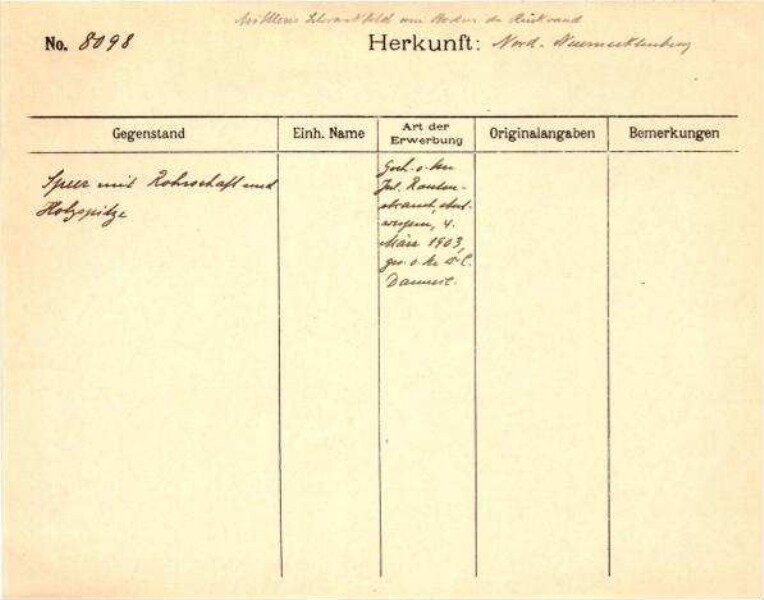 Mittleres Schrankfeld am Boden der Rückwand
No. 8098 Herkunft: Nord-Neumecklenburg
Gegenstand Einh. Name Art der Erwerbung Originalangaben Bemerkungen
Speer mit Rohrschaft und
Holzspitze
Gesch. v. Hrn
Jul. Rauten-
strauch, Ant-
werpen, 4.
März 1903,
ges. v. Hr Dr. C.